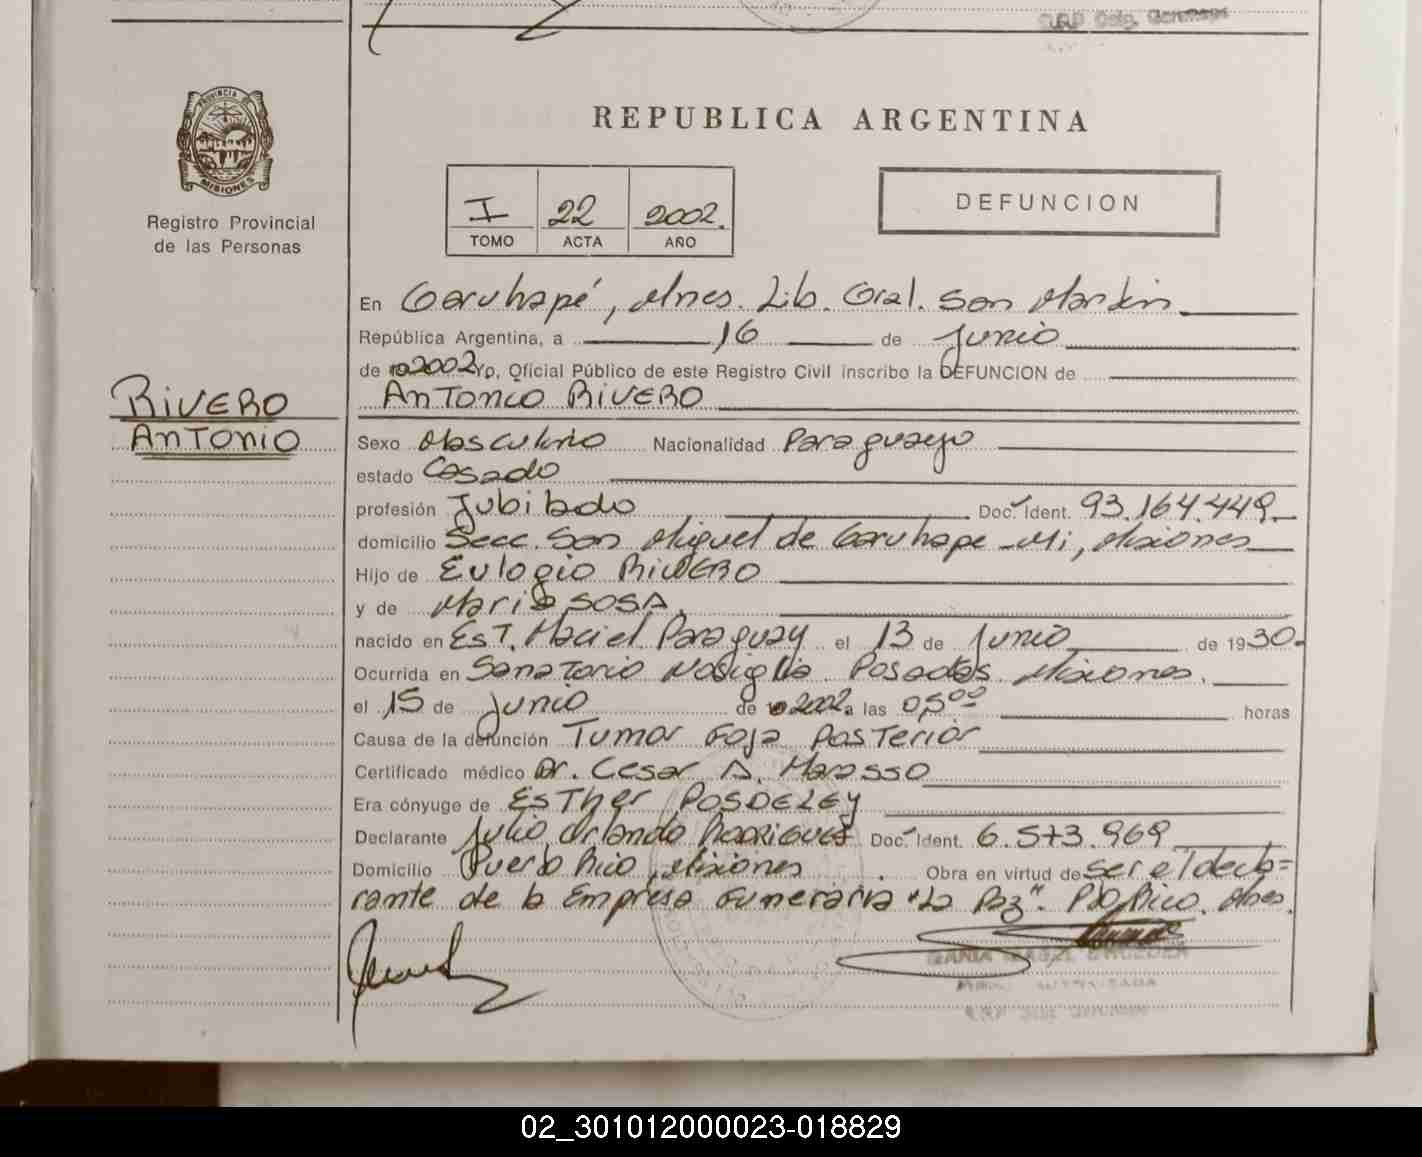 PROVINCIA DE
MISIONES
Registro Provincial
de las Personas
REPUBLICA ARGENTINA
I 22 2002.
TOMO ACTA AÑO
DEFUNCION
En Garuhapé, Mnes. Lib. Gral. San Martin
República Argentina, a 16 de Junio
de 2002 Yo, Oficial Público de este Registro Civil inscribo la DEFUNCION de
AnTonio RiVERO
RiVERO
AnTONiO
Sexo Masculino Nacionalidad Paraguayo
estado Casado
profesión Jubilado Doc. Ident. 93.164.449.
domicilio Secc. San Miguel de Garuhape-Mi, Misiones
Hijo de Eulogio RiVERO
y de Maria SOSA.
nacido en EsT. Maciel Paraguay el 13 de Junio de 1930.
Ocurrida en SanaTorio Nosiglia Posadas Misiones.
el 15 de Junio de 2002 a las 05:00 horas
Causa de la defunción Tumor Foja PosTerior
Certificado médico Dr. Cesar A. Marasso
Era cónyuge de EsTher POSDELEY
Declarante Julio Orlando RODRIGUEZ Doc. Ident. 6.573.969
Domicilio Puerto Rico, Misiones. Obra en virtud de ser el decla=
rante de la Empresa Funeraria "La Paz". Pto Rico. Mnes.
02_301012000023-018829